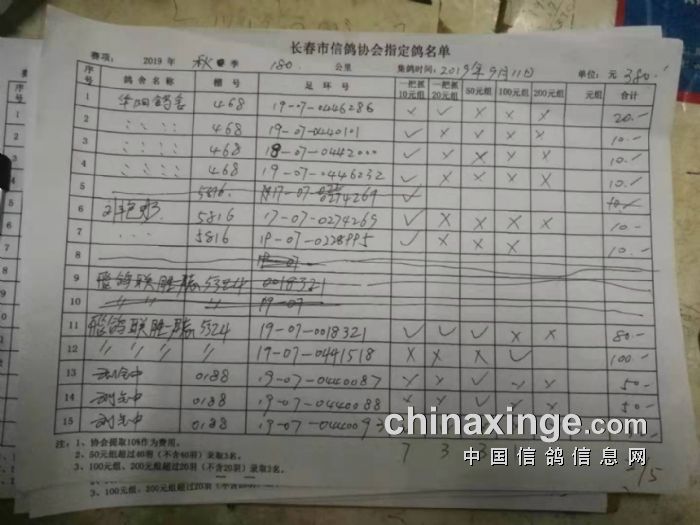 长春市信鸽协会指定鸽名单
赛项： 2019 年 秋 季 180 公里 集鸽时间：2019年9月11日 单位：元 380.-
序号 鸽舍名称 棚号 足环号 一把抓10元组 一把抓20元组 50元组 100元组 200元组 元组 合计
1 华阳鸽舍 468 19-07-0446286 × ✓ × × × 20.-
2 〃 〃 〃 〃 468 19-07-0440101 ✓ × × × × 10.-
3 〃 〃 〃 〃 468 19-07-0442000 ✓ ✓ × × × 10.-
4 〃 〃 〃 〃 468 19-07-0446232 ✓ × × × × 10.-
5 5816 17-07-0274269 ✓ 10.-
6 5816 17-07-0274269 ✓ × × × × 10.-
7 5816 19-07-0228995 ✓ × × × 10.-
8 19-07
9 飞鸽联胜 5324 0018321
10 〃 〃 〃 19-07
11 飞鸽联胜 5324 19-07-0018321 ✓ ✓ ✓ × × 80.-
12 〃 〃 〃 〃 19-07-0441518 × × × ✓ 100.-
13 0188 19-07-0440087 × × ✓ × × 50.-
14 0188 19-07-0440088 50.-
15 0188 19-07-044009
注：1、协会提取10%作为费用。
2、50元组超过40羽（不含40羽）录取3名。
3、100元组、200元组超过20羽（不含20羽）录取3名。
7 3 3
3、100元组、200元组超过20羽（不含20羽）录取3名。
chinaxinge.com
中国信鸽信息网